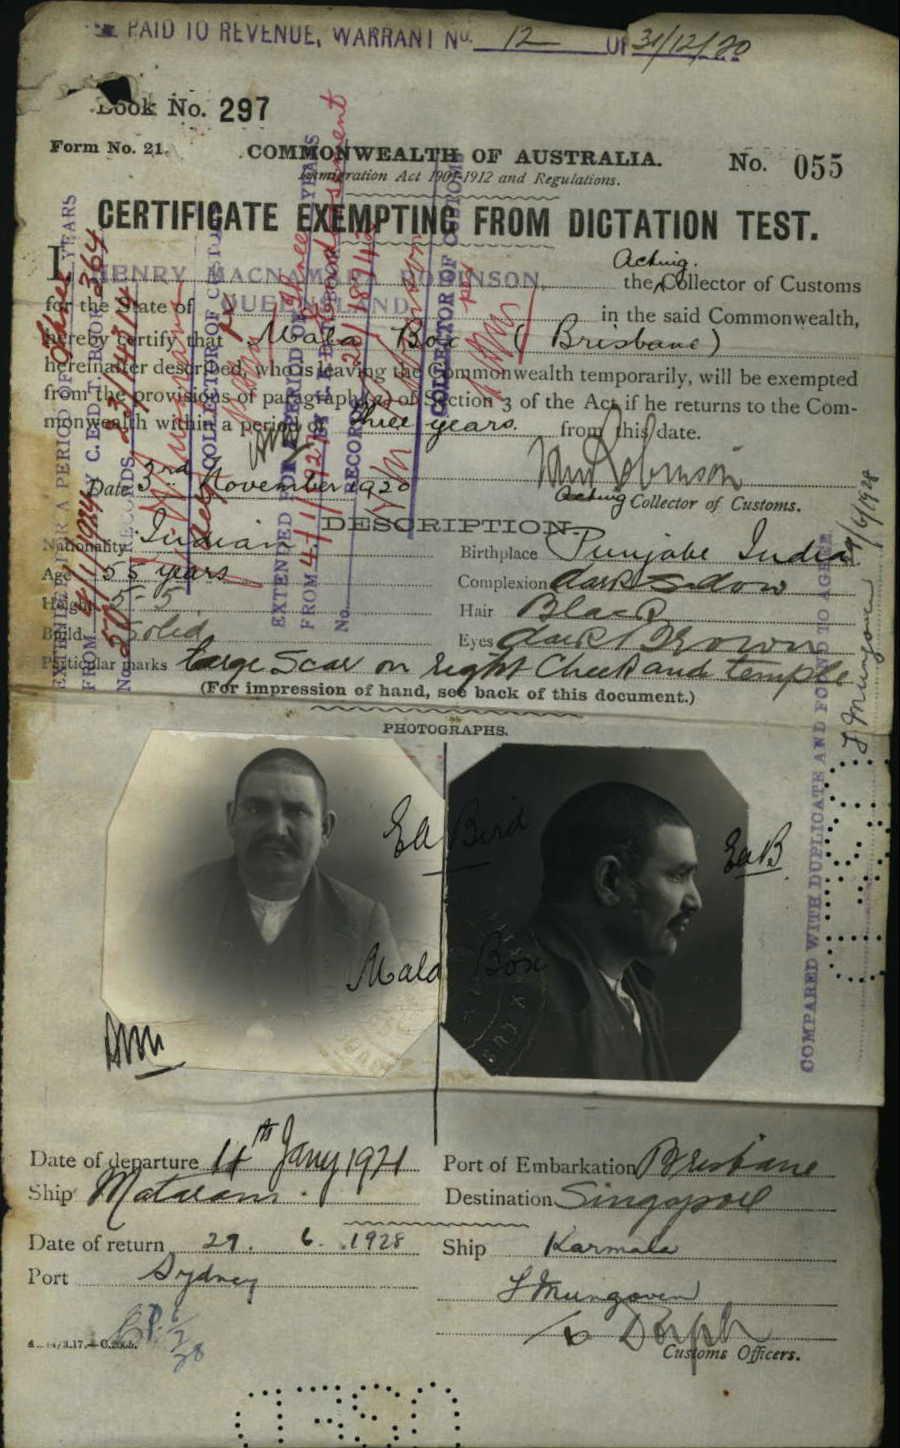 PAID TO REVENUE, WARRANT No. 12 OF 31/12/20
Book No. 297
Form No. 21.
COMMONWEALTH OF AUSTRALIA.
No. 055
Immigration Act 1901-1912 and Regulations.
CERTIFICATE EXEMPTING FROM DICTATION TEST.
I HENRY MACNAMARA ROBINSON, the Acting Collector of Customs
for the State of QUEENSLAND in the said Commonwealth,
hereby certify that Mala Box (Brisbane)
hereinafter described, who is leaving the Commonwealth temporarily, will be exempted
from the provisions of paragraph (a) of Section 3 of the Act if he returns to the Com-
monwealth within a period of three years from this date.
Date 3rd November 1920
Acting Collector of Customs.
DESCRIPTION.
Nationality Indian
Birthplace Punjabe India
Age 55 years
Complexion dark
Height 5-5
Hair Black
Build Solid
Eyes dark Brown
Particular marks Large Scar on right Cheek and temple
(For impression of hand, see back of this document.)
EXTENDED FOR A PERIOD OF three YEARS
FROM 4/1/1924
C.E.D.T. BOOK 364
COLLECTOR OF CUSTOMS
EXTENDED FOR A PERIOD OF three YEARS
RECORDS
COLLECTOR OF CUSTOMS
COMPARED WITH DUPLICATE AND FOUND TO AGREE
F Mungoven
PHOTOGRAPHS.
Ed Bird
EdB
Mala Box
Date of departure 4th Jany 1921
Port of Embarkation Brisbane
Ship Mataram
Destination Singapore
Date of return 29. 6. 1928
Ship Karmala
Port Sydney
F Mungoven
Customs Officers.